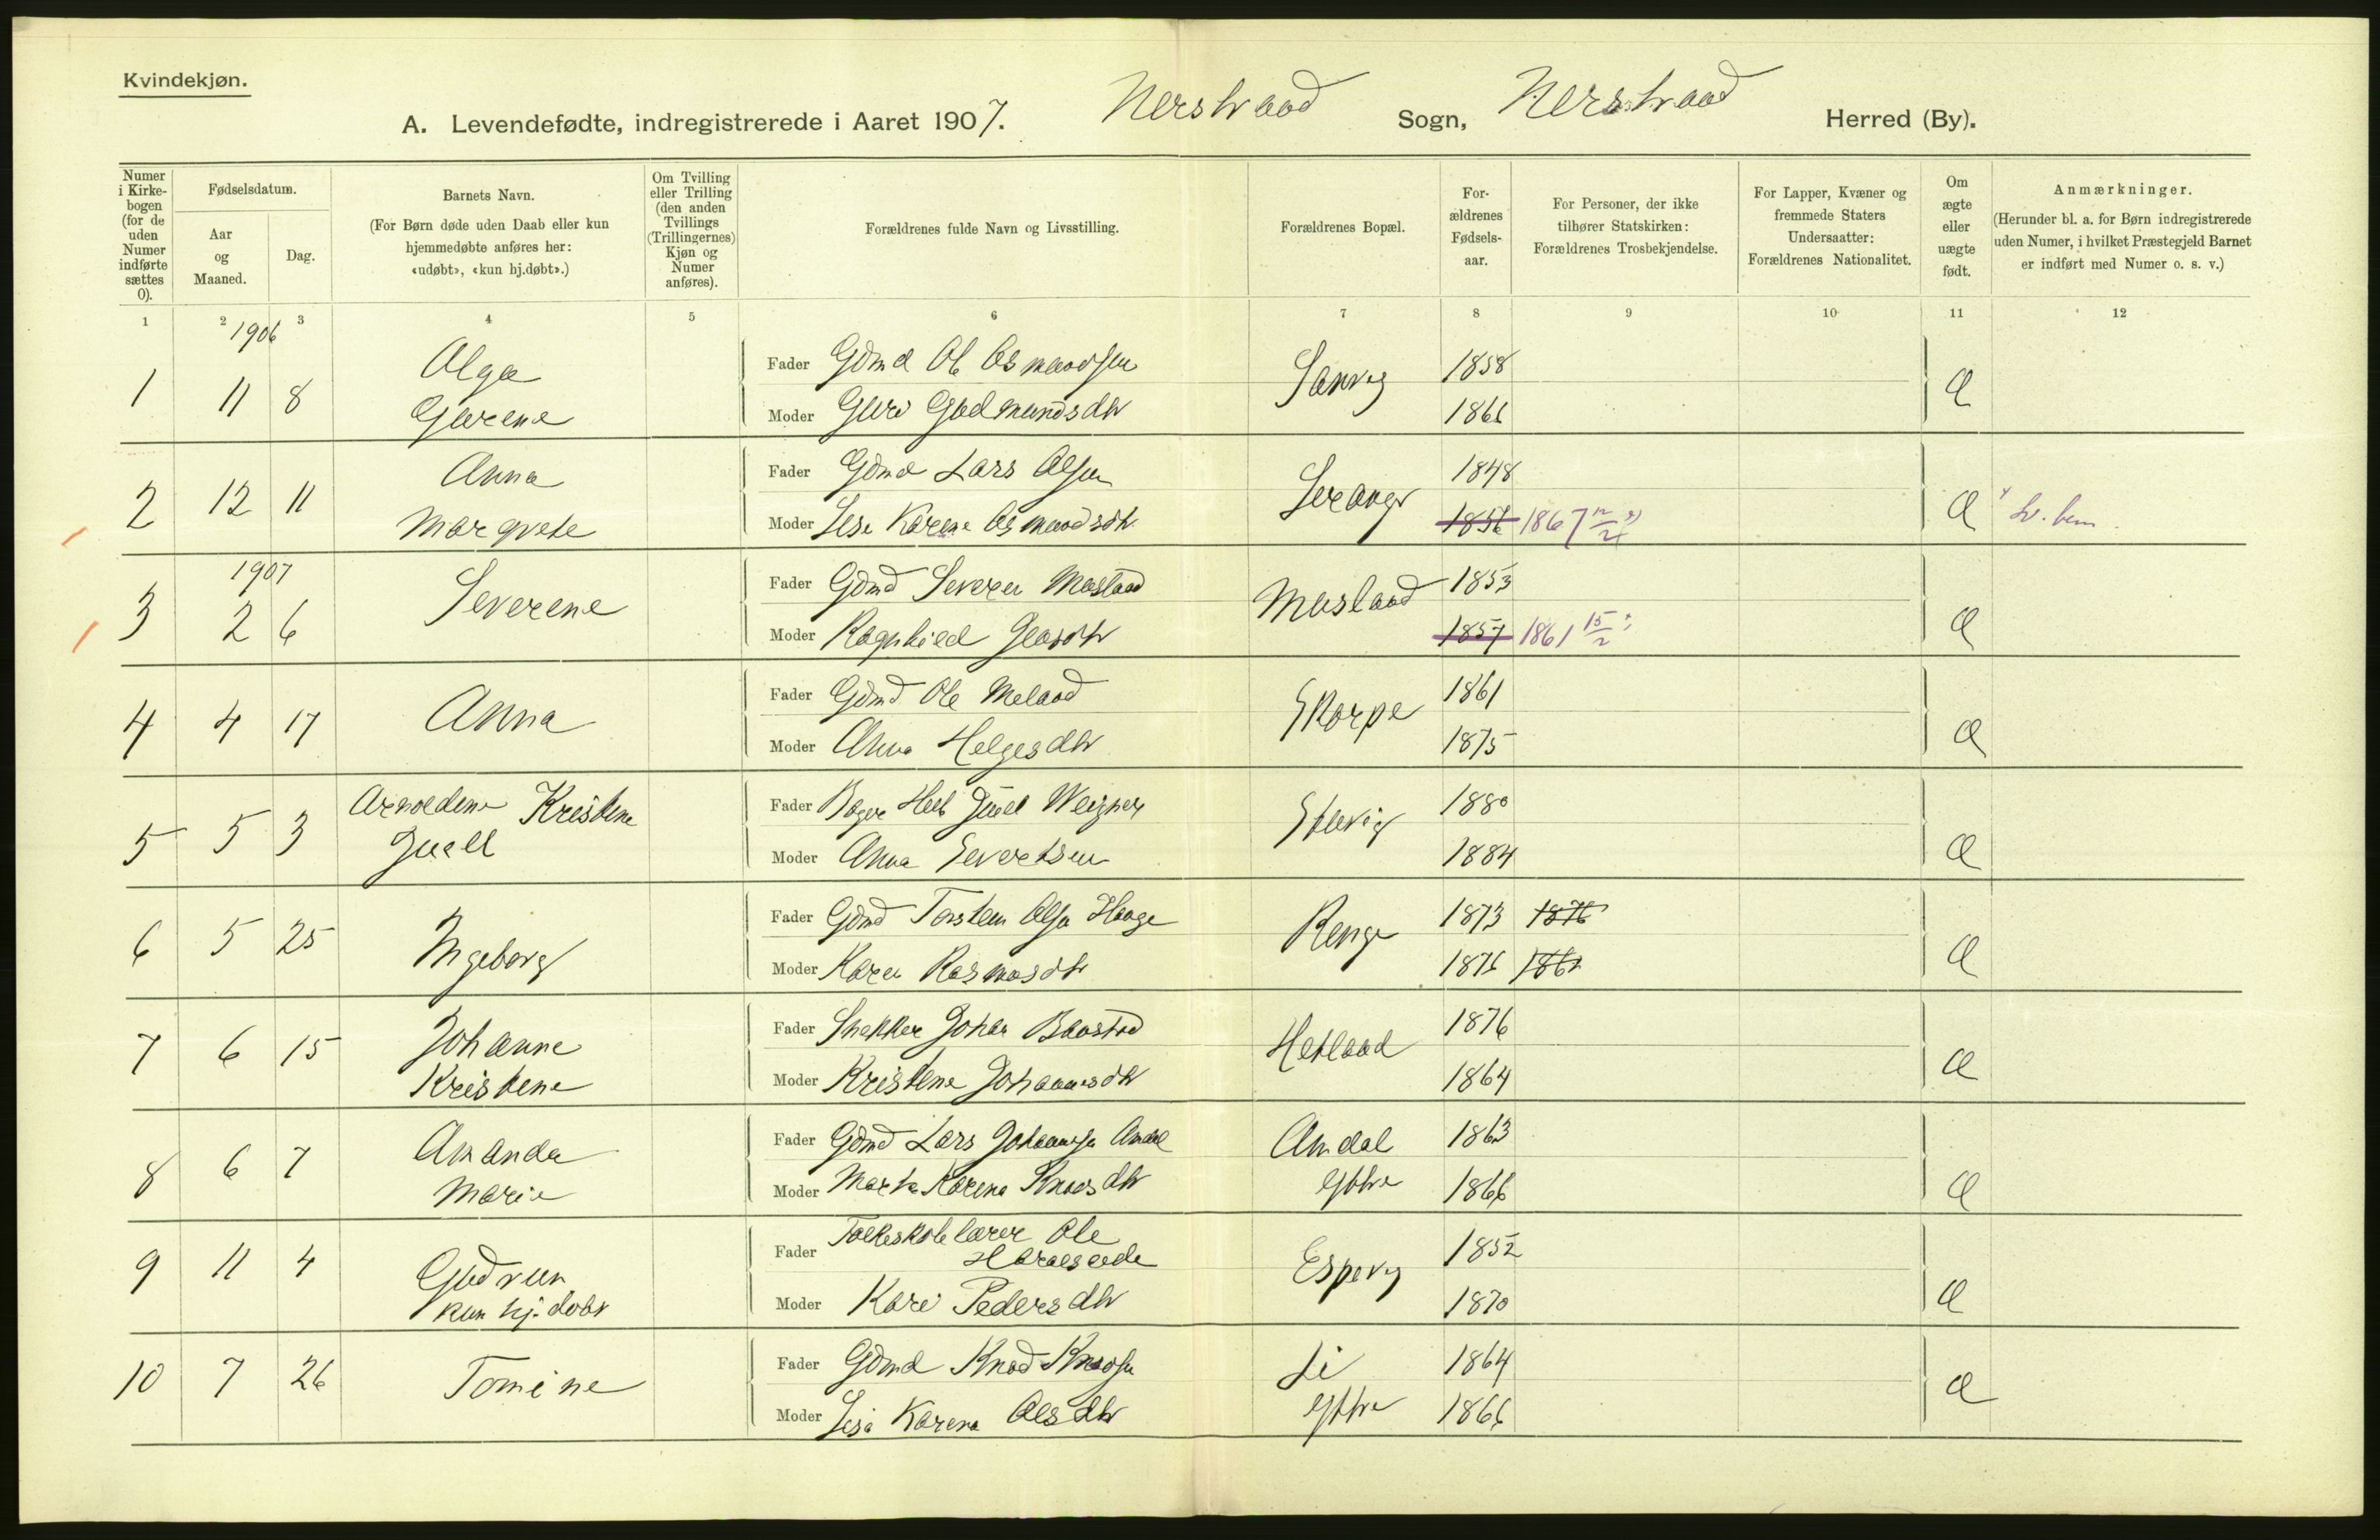 Kvindekjøn.
A. Levendefødte, indregistrerede i Aaret 1907. Nerstrand Sogn, Nerstrand Herred (By).
Numer i Kirkebogen (for de uden Numer indførte sættes 0).
Fødselsdatum.
Aar og Maaned.
Dag.
Barnets Navn.
(For Børn døde uden Daab eller kun hjemmedøbte anføres her: «udøbt», «kun hj.døbt».)
Om Tvilling eller Trilling (den anden Tvillings (Trillingernes) Kjøn og Numer anføres).
Forældrenes fulde Navn og Livsstilling.
Forældrenes Bopæl.
Forældrenes Fødselsaar.
For Personer, der ikke tilhører Statskirken: Forældrenes Trosbekjendelse.
For Lapper, Kvæner og fremmede Staters Undersaatter: Forældrenes Nationalitet.
Om ægte eller uægte født.
Anmærkninger.
(Herunder bl. a. for Børn indregistrerede uden Numer, i hvilket Præstegjeld Barnet er indført med Numer o. s. v.)
1 2 3 4 5 6 7 8 9 10 11 12
1906
1 11 8 Olga Gurene
Fader Gdmd Ol Osmundsen 1858
Moder Guri Gudmundsdtr 1866
Sanvig Æ
2 12 11 Anna Margrete
Fader Gdmd Lars Olsen 1848
Moder Lise Karene Osmundsdtr 1856 1867 12/2
Æ
1907
3 2 6 Severene
Fader Gdmd Severen Masland 1853
Moder Ragnhild 1857 1861 15/2
Masland Æ
4 4 17 Anna
Fader Gdmd Ole Meland 1861
Moder Anna Helgesdtr 1875
Skorpe Æ
5 5 3 Arnoldene Kristene Juell
Fader Bager Juell 1880
Moder Anna Severtsen 1884
Æ
6 5 25 Ingeborg
Fader Gdmd Torsten Olsen Hauge 1873 1876
Moder Karen Rasmusdtr 1876
Renge Æ
7 6 15 Johanne Kristene
Fader Snekker Johan 1876
Moder Kristene Johannesdtr 1864
Hetland Æ
8 6 7 Amanda Marie
Fader Gdmd Lars Johannesen Amdal 1863
Moder Marta Karena Knudsdtr 1866
Amdal Ytre Æ
9 11 4 Gudrun kun hj. døbt
Fader Folkeskolelærer Ole 1852
Moder Kari Pedersdtr 1870
Espevig Æ
10 7 26 Tomine
Fader Gdmd Knud Knudsen 1864
Moder Karena Olsdtr 1866
Li Ytre Æ